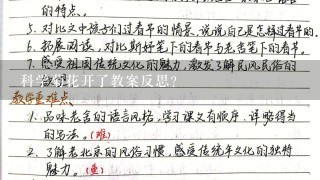 的特点。
5. 对比文中孩子们过春节的情景,说说自己是怎样过春节的。
6. 拓展阅读,对比斯妤笔下的春节与老舍笔下的春节。
7. 感受祖国传统文化的魅力,激发了解民风民俗的
科学菊花开了教案反思?
教学重难点
1. 品味老舍的语言风格,学习课文有顺序、详略得当
的写法。(难)
2. 了解老北京的风俗习惯,感受传统年文化的独特
魅力。(重)